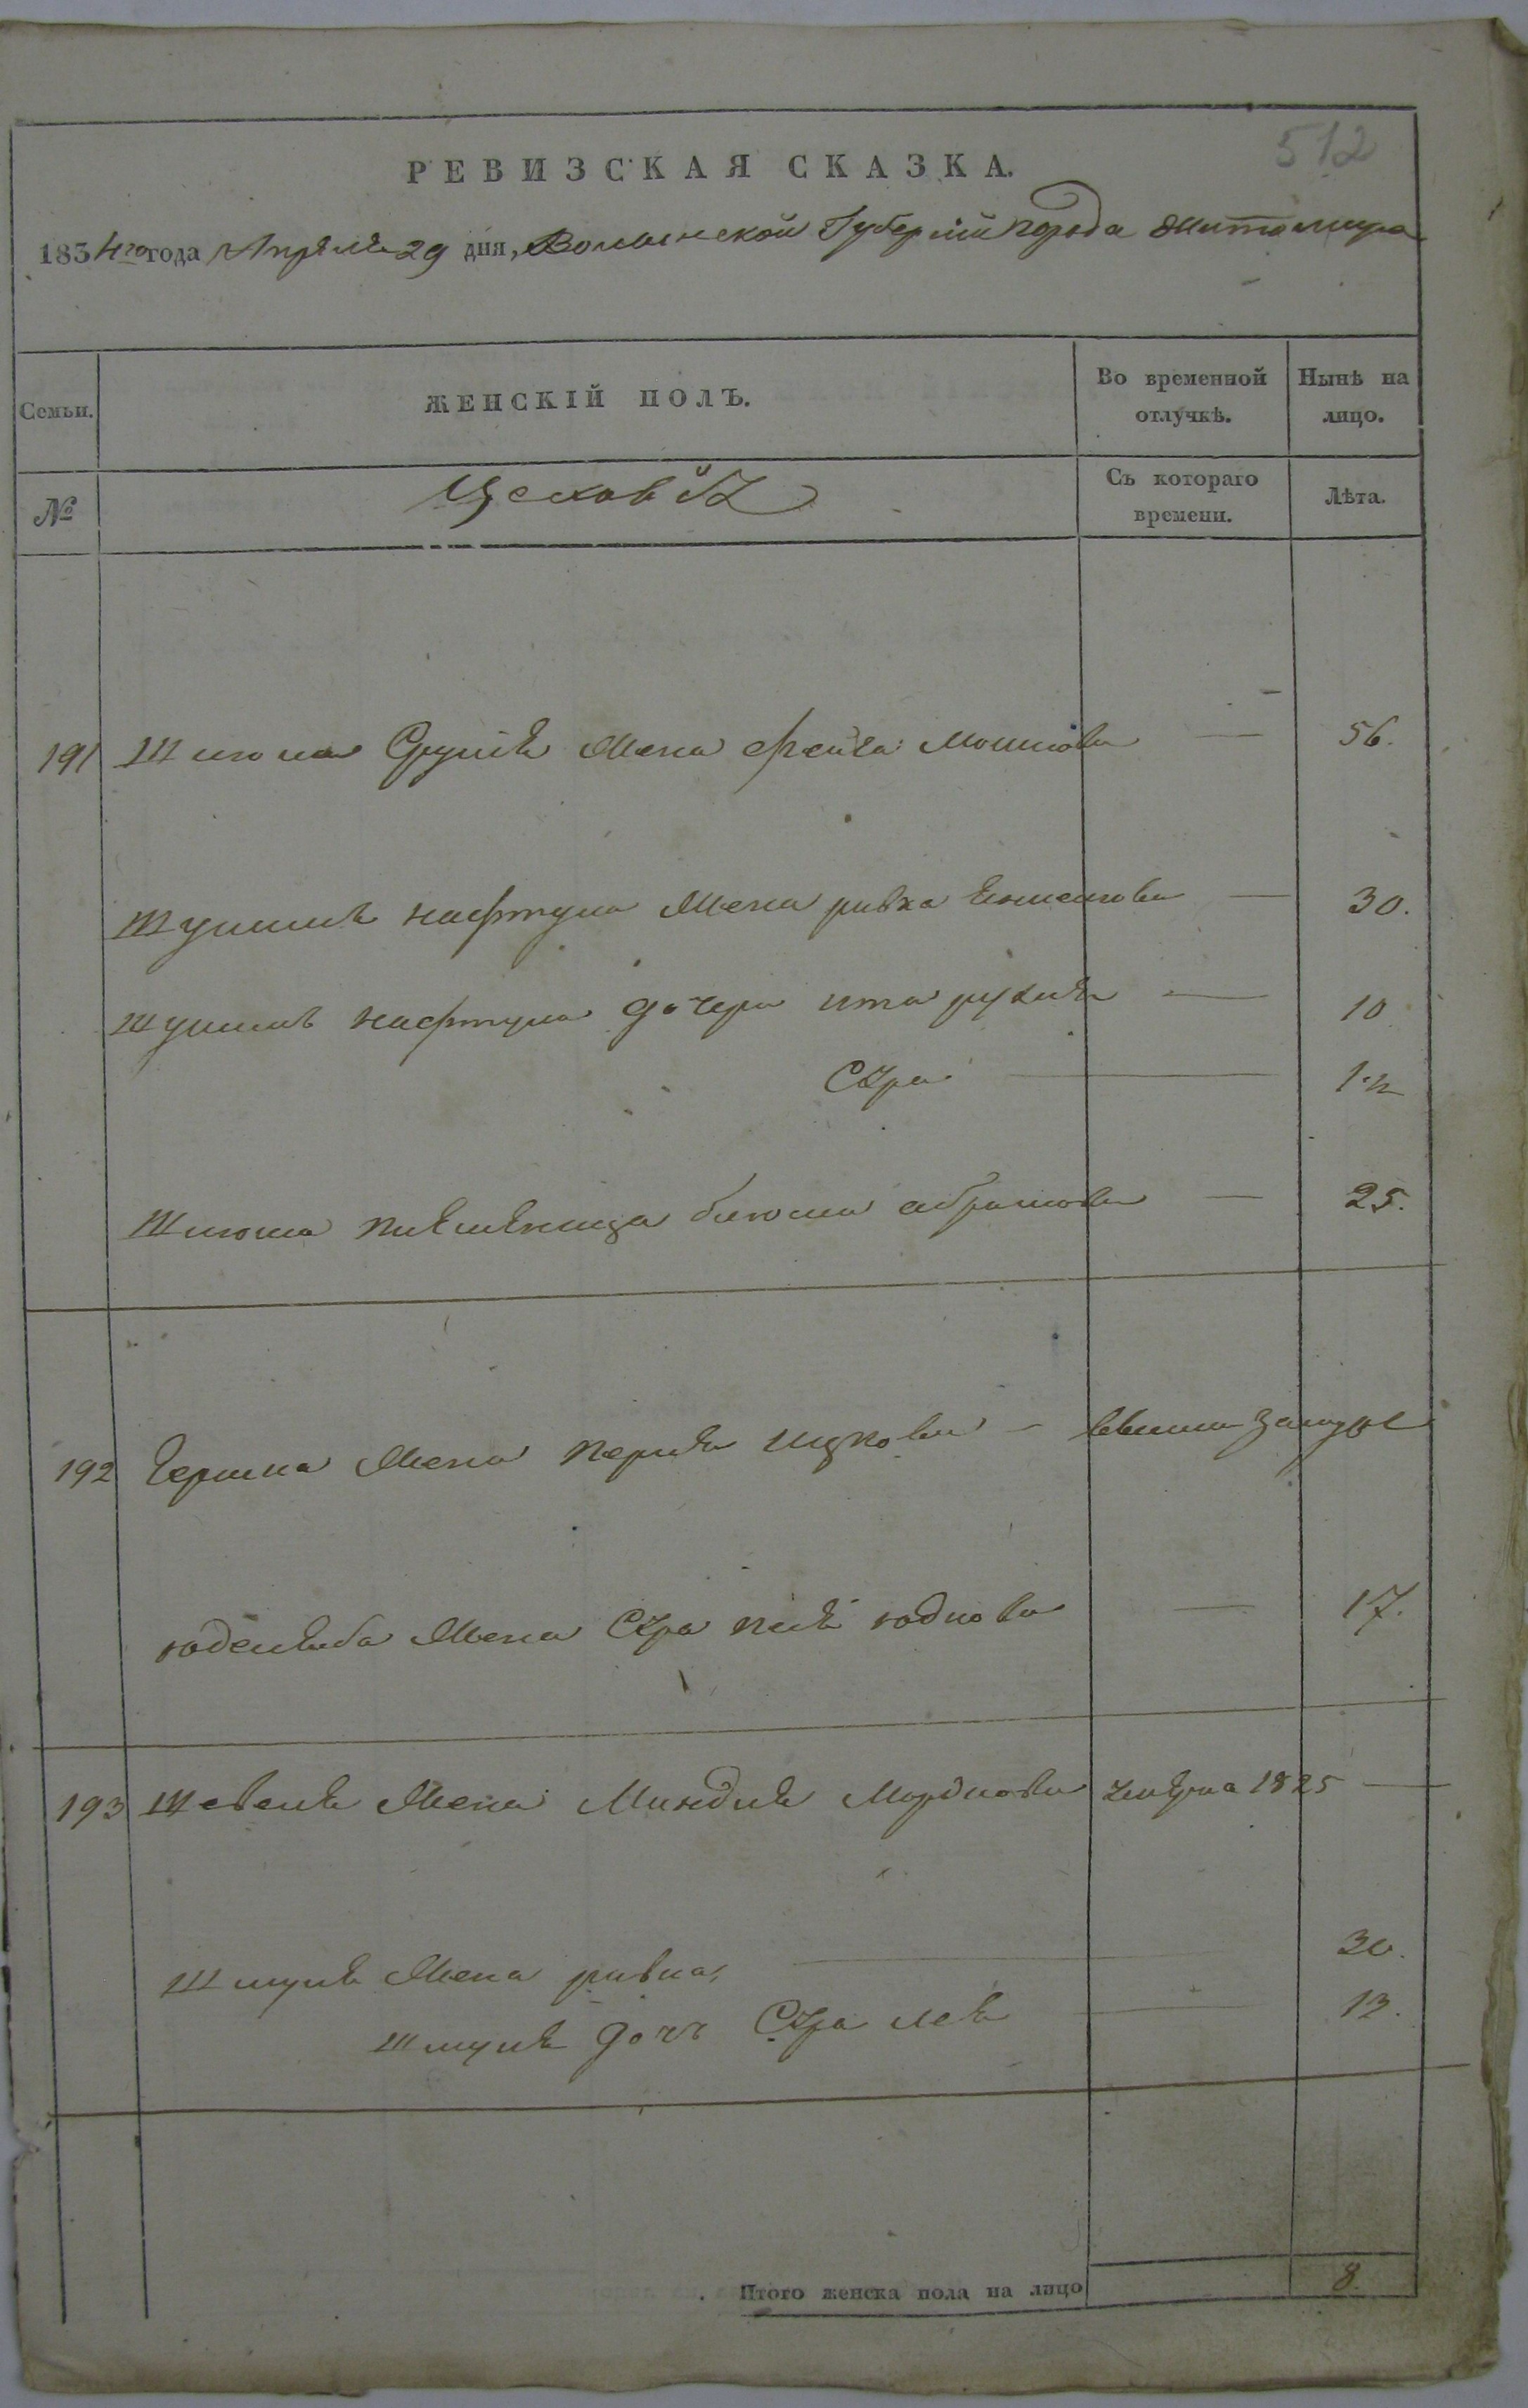 512
РЕВИЗСКАЯ СКАЗКА.
1834го года Апреля 29 дня, Волынской Губернии города Житомира
Семьи.
ЖЕНСКІЙ ПОЛЪ.
Во временной отлучкѣ.
Нынѣ на лицо.
№
Цехов
Съ котораго времени.
Лѣта.
191 Шлюма Сруля жена Фейга Мошкова — 56.
нафтула жена ривха — 30.
нафтула дочери ита рухля — 10
Сура — 1 ½
Шлюма племяница блюма абрамова — 25.
192 Гершка жена Перля Ицкова —
жена Сура юдкова — 17.
193 жена Миндля Мордкова умерла 1825 —
Шмуля жена ривка — 30.
Шмуля дочь Сура лея — 13.
Итого женска пола на лицо 8.